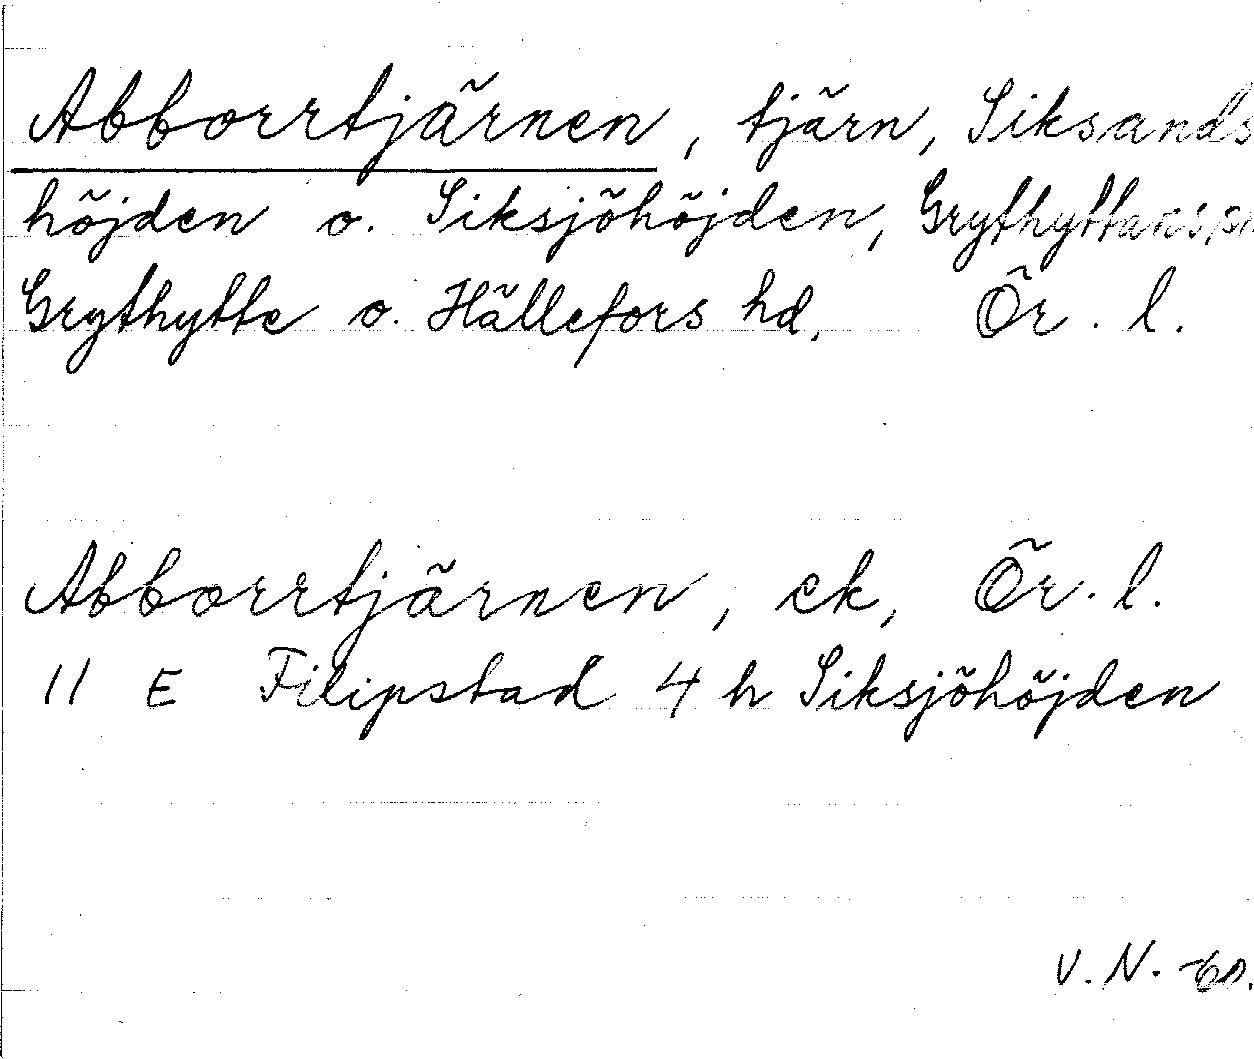 Abborrtjärnen, tjärn, Siksands
höjden o. Siksjöhöjden, Grythyttans sn
Grythytte o. Hällefors hd, Ör. l.
Abborrtjärnen, ek, Ör. l.
11 E Filipstad 4 h Siksjöhöjden
V. N. -60.